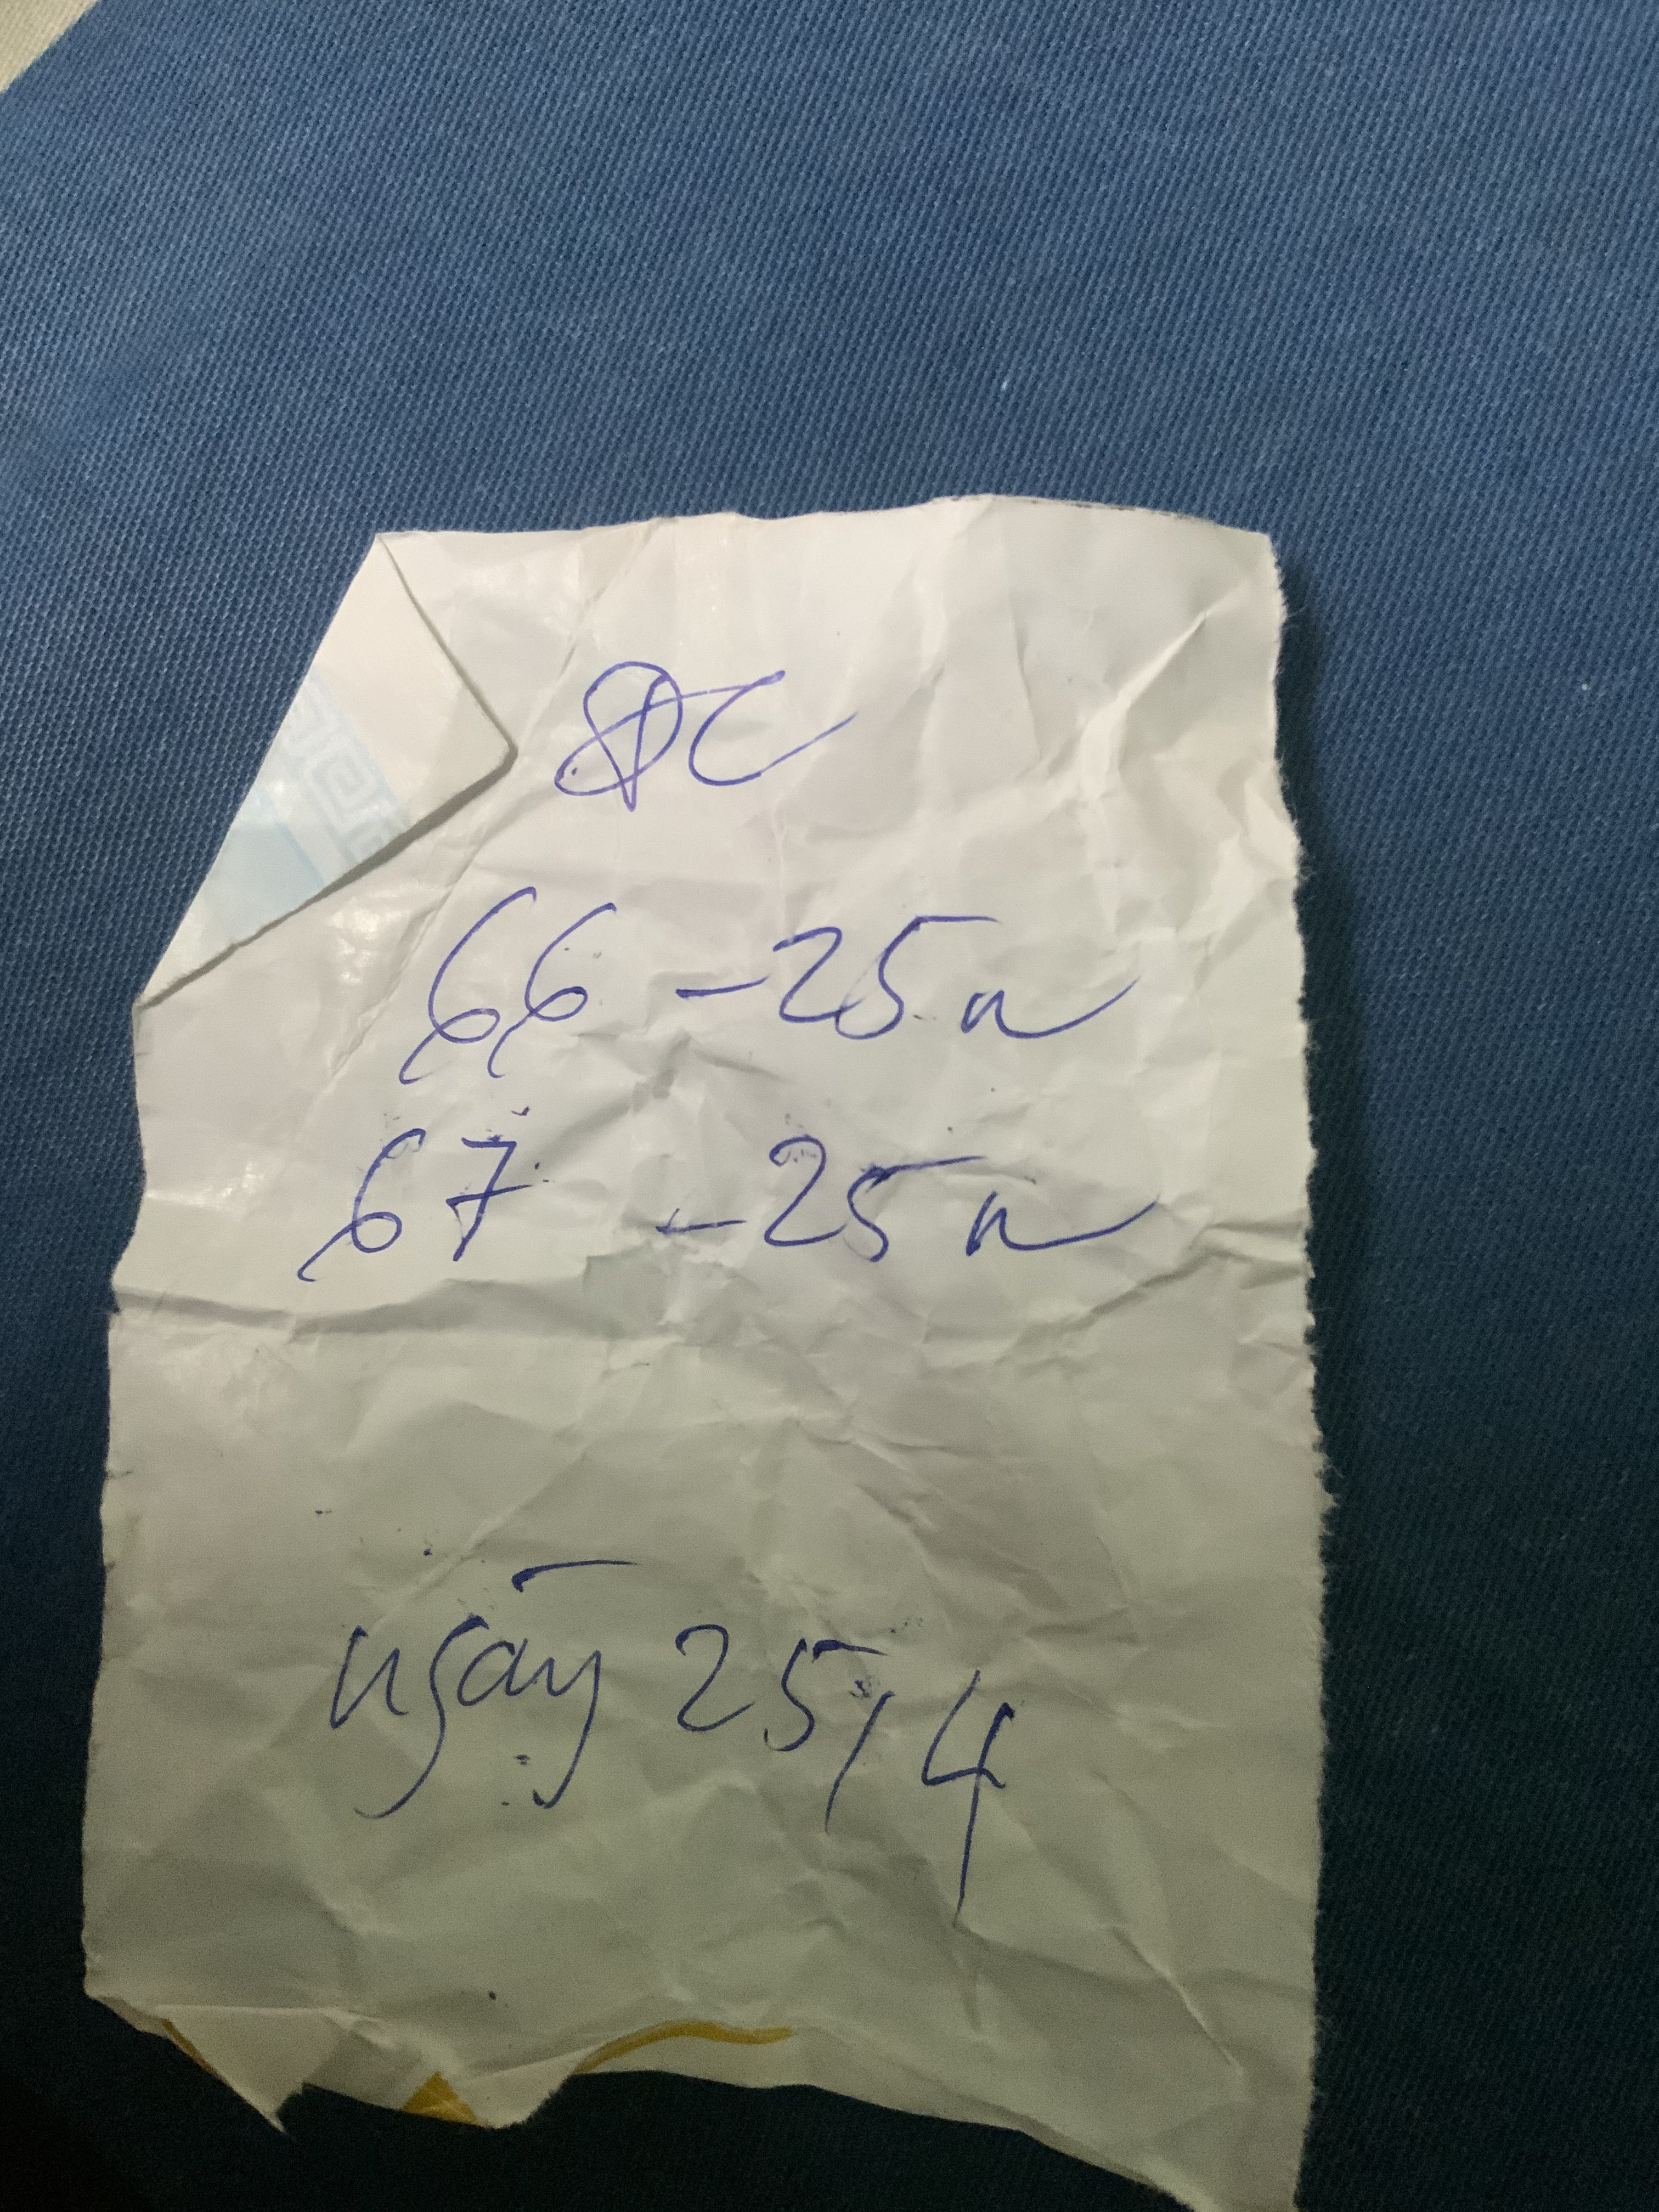 ĐC
66 - 25n
67 - 25n
ngày 25/4